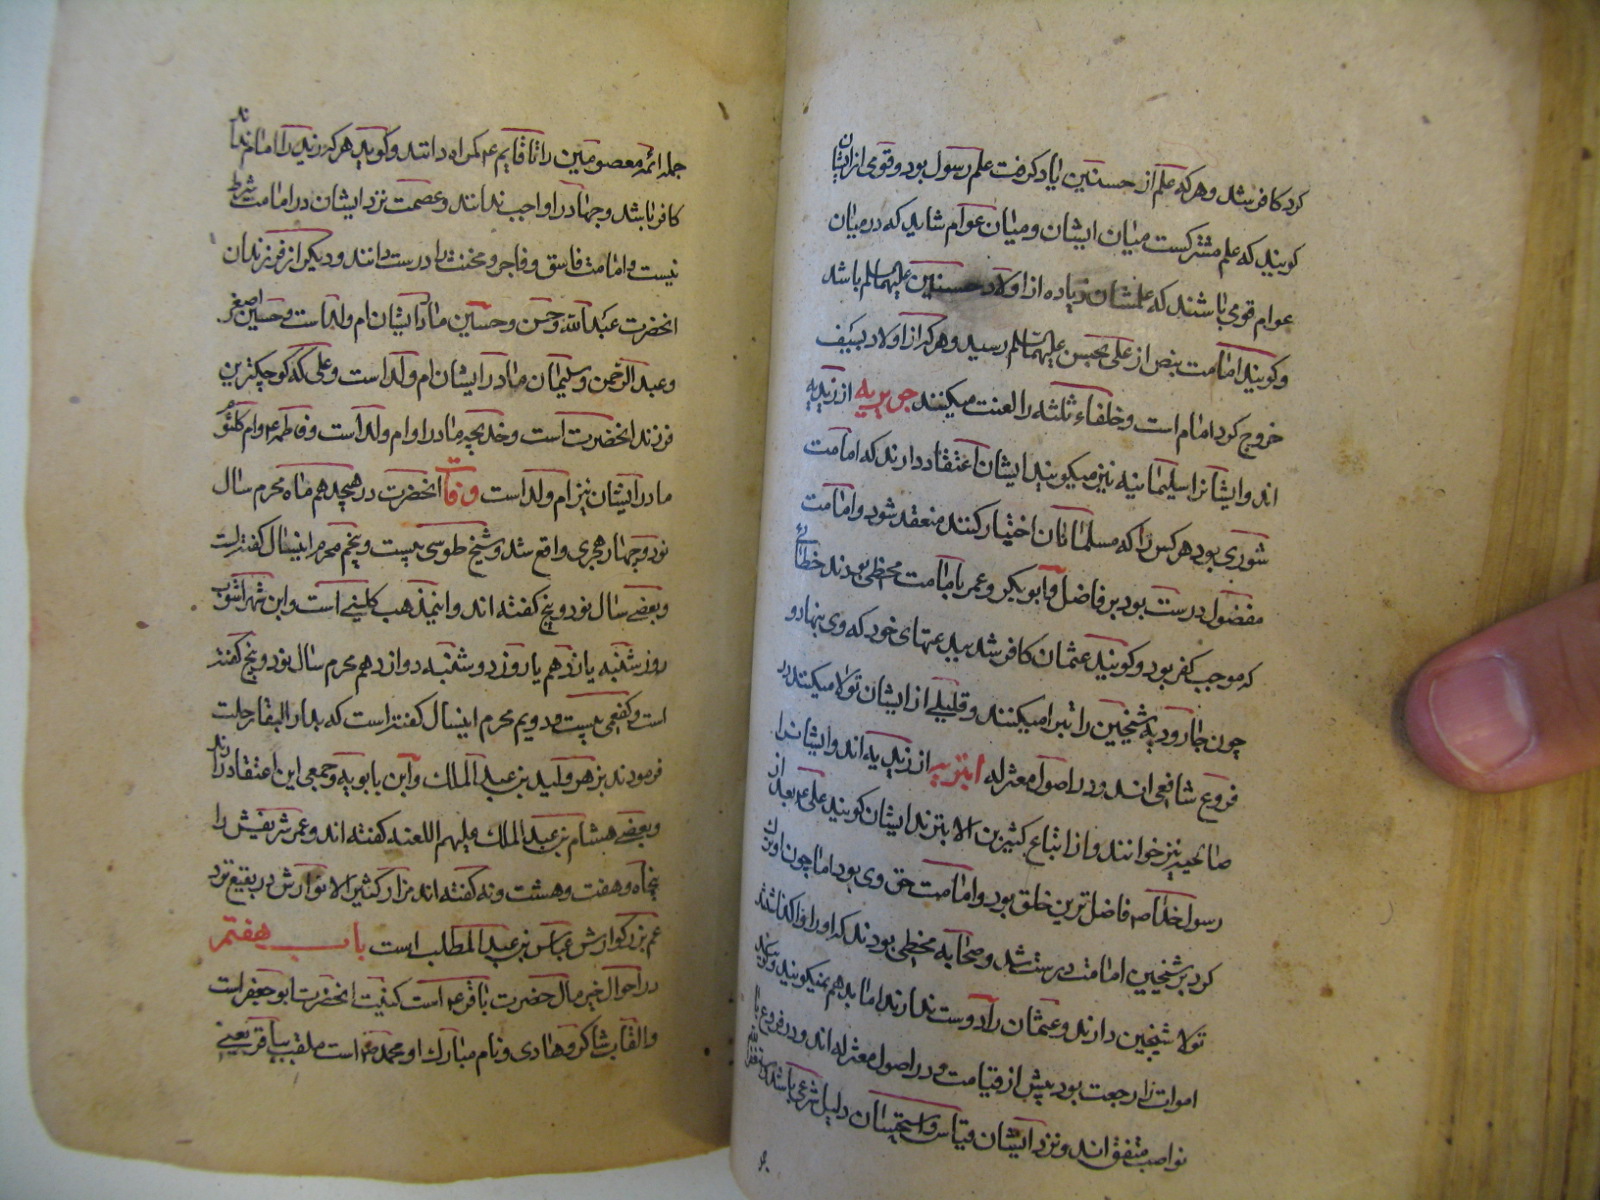 کرد کافر شد و هر که علم از حسنین یاد گرفت علم رسول بود و قومی از ایشان
گویند که علم مشترکست میان ایشان و میان عوام شاید که در میان
عوام قومی باشند که علمشان زیاده از اولاد حسنین علیهما سلم باشد
و گویند امامت بنص از علی بحسین علیهما سلم رسید و هر که از اولاد بسیف
خروج کرد امام است و خلفاء ثلثه را لعنت میکنند جریریه از زیدیه
اند و ایشانرا سلیمانیه نیز میگویند ایشان اعتقاد دارند که امامت
شوری بود هر کس را که مسلمانان اختیار کنند منعقد شود و امامت
مفضول درست بود بر فاضل و ابوبکر و عمر بامامت مخطی بودند خطائی
که موجب کفر بود و گویند عثمان کافر شد ببدعتهای خود که وی بنهاد و
چون جارودیه شیخین را تبرا میکنند و قلیلی از ایشان تولا میکنند در
فروع شافعی اند و در اصول معتزله ابتریه از زیدیه اند و ایشانرا
صالحیه نیز خوانند و از اتباع کثیر بن الابترند ایشان گویند علی ع بعد از
رسول خدا ص فاضل ترین خلق بود و امامت حق وی بود اما چون او ترک
کرد بر شیخین امامت درست شد و صحابه مخطی بودند که او را واگذاشتند
تولا شیخین دارند و عثمان را دوست ندارند اما بد هم نمیگویند و گویند
اموات را رجعت بود پیش از قیامت و در اصول معتزله اند و در فروع با
نواصب متفق اند و نزد ایشان قیاس و استحسان دلیل شرعی باشد
جمله ائمه معصومین را تا قایم ع گمراه دانند و گویند هر که زید را امام نداند
کافر باشد و جهاد را واجب ندانند و عصمت نزد ایشان در امامت شرط
نیست و امامت فاسق و فاجر و مخنث را درست دانند و دیگر از فرزندان
انحضرت عبد الله و حسن و حسین مادر ایشان ام ولد است و حسین اصغر
و عبد الرحمن و سلیمان مادر ایشان ام ولد است و علی که کوچکترین
فرزند انحضرت است و خدیجه مادر او ام ولد است و فاطمه ع و ام کلثوم
مادر ایشان نیز ام ولد است وفات انحضرت در هیجدهم ماه محرم سال
نود و چهار هجری واقع شد و شیخ طوسی بیست و پنجم محرم اینسال گفته است
و بعضی سال نود و پنج گفته اند و اینمذهب کلینی است و ابن شهر اشوب
روز شنبه یازدهم یا روز دوشنبه دوازدهم محرم سال نود و پنج گفته
است و کفعمی بیست و دویم محرم اینسال گفته است که بدار البقا رحلت
فرمودند بزهر ولید بن عبد الملک و ابن بابویه و جمعی این اعتقاد دارند
و بعضی هشام بن عبد الملک علیهم اللعنه گفته اند و عمر شریفش را
پنجاه و هفت و هشت و نه گفته اند مزار کثیر الانوارش در بقیع نزد
عم بزرگوارش عباس بن عبد المطلب است باب هفتم
در احوال خیر مال حضرت باقر ع است کنیت انحضرت ابو جعفر است
و القاب شاکر و هادی و نام مبارک او محمد است ملقب بباقر یعنی